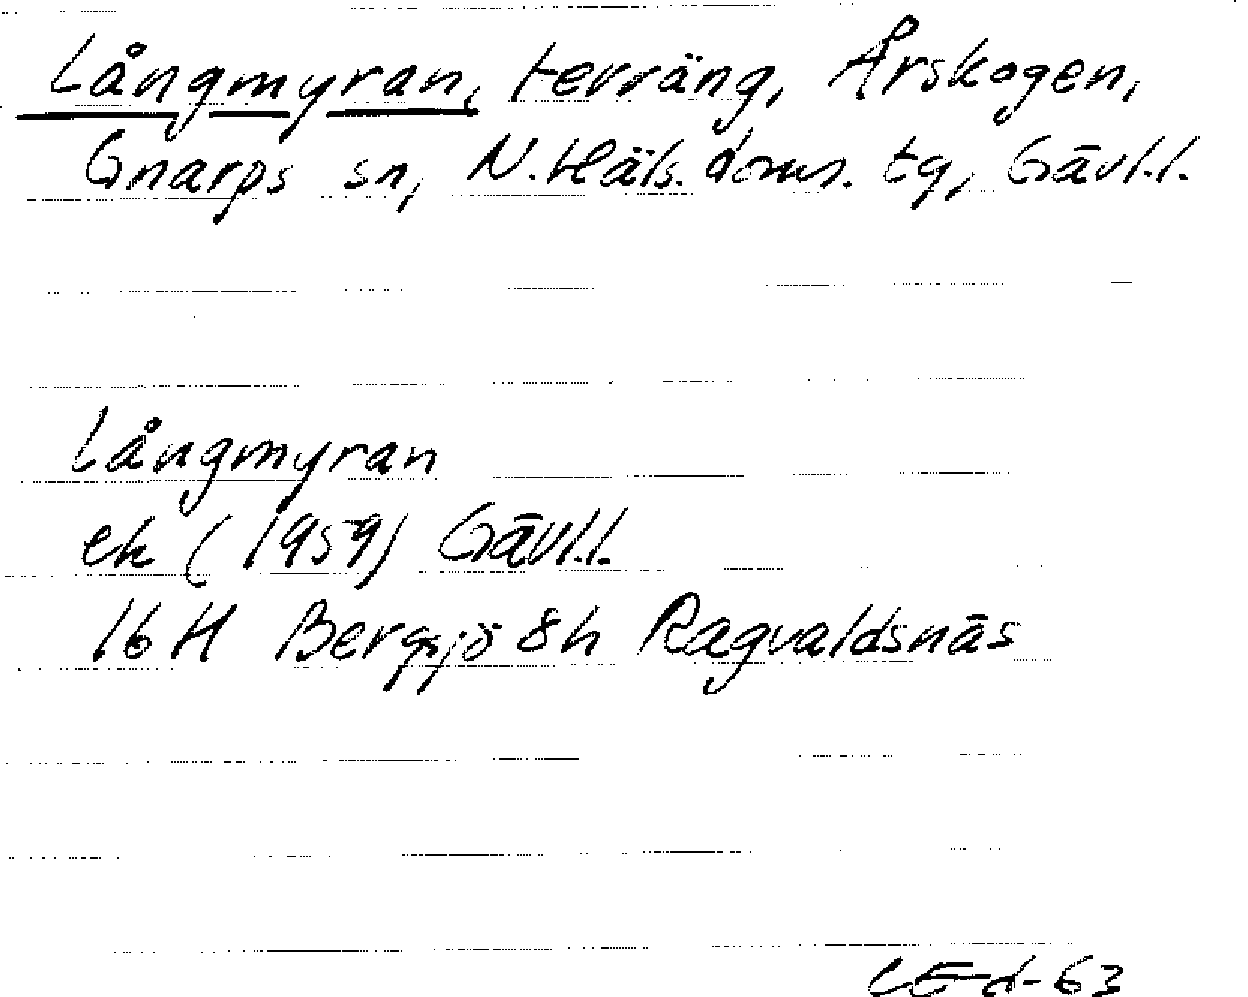 Långmyran, terräng, Årskogen,
Gnarps sn, N. Häls. doms. tg, Gävl.l.
Långmyran
ek (1959) Gävl.l.
16 H Bergsjö 8h Ragvaldsnäs
CE-d-63